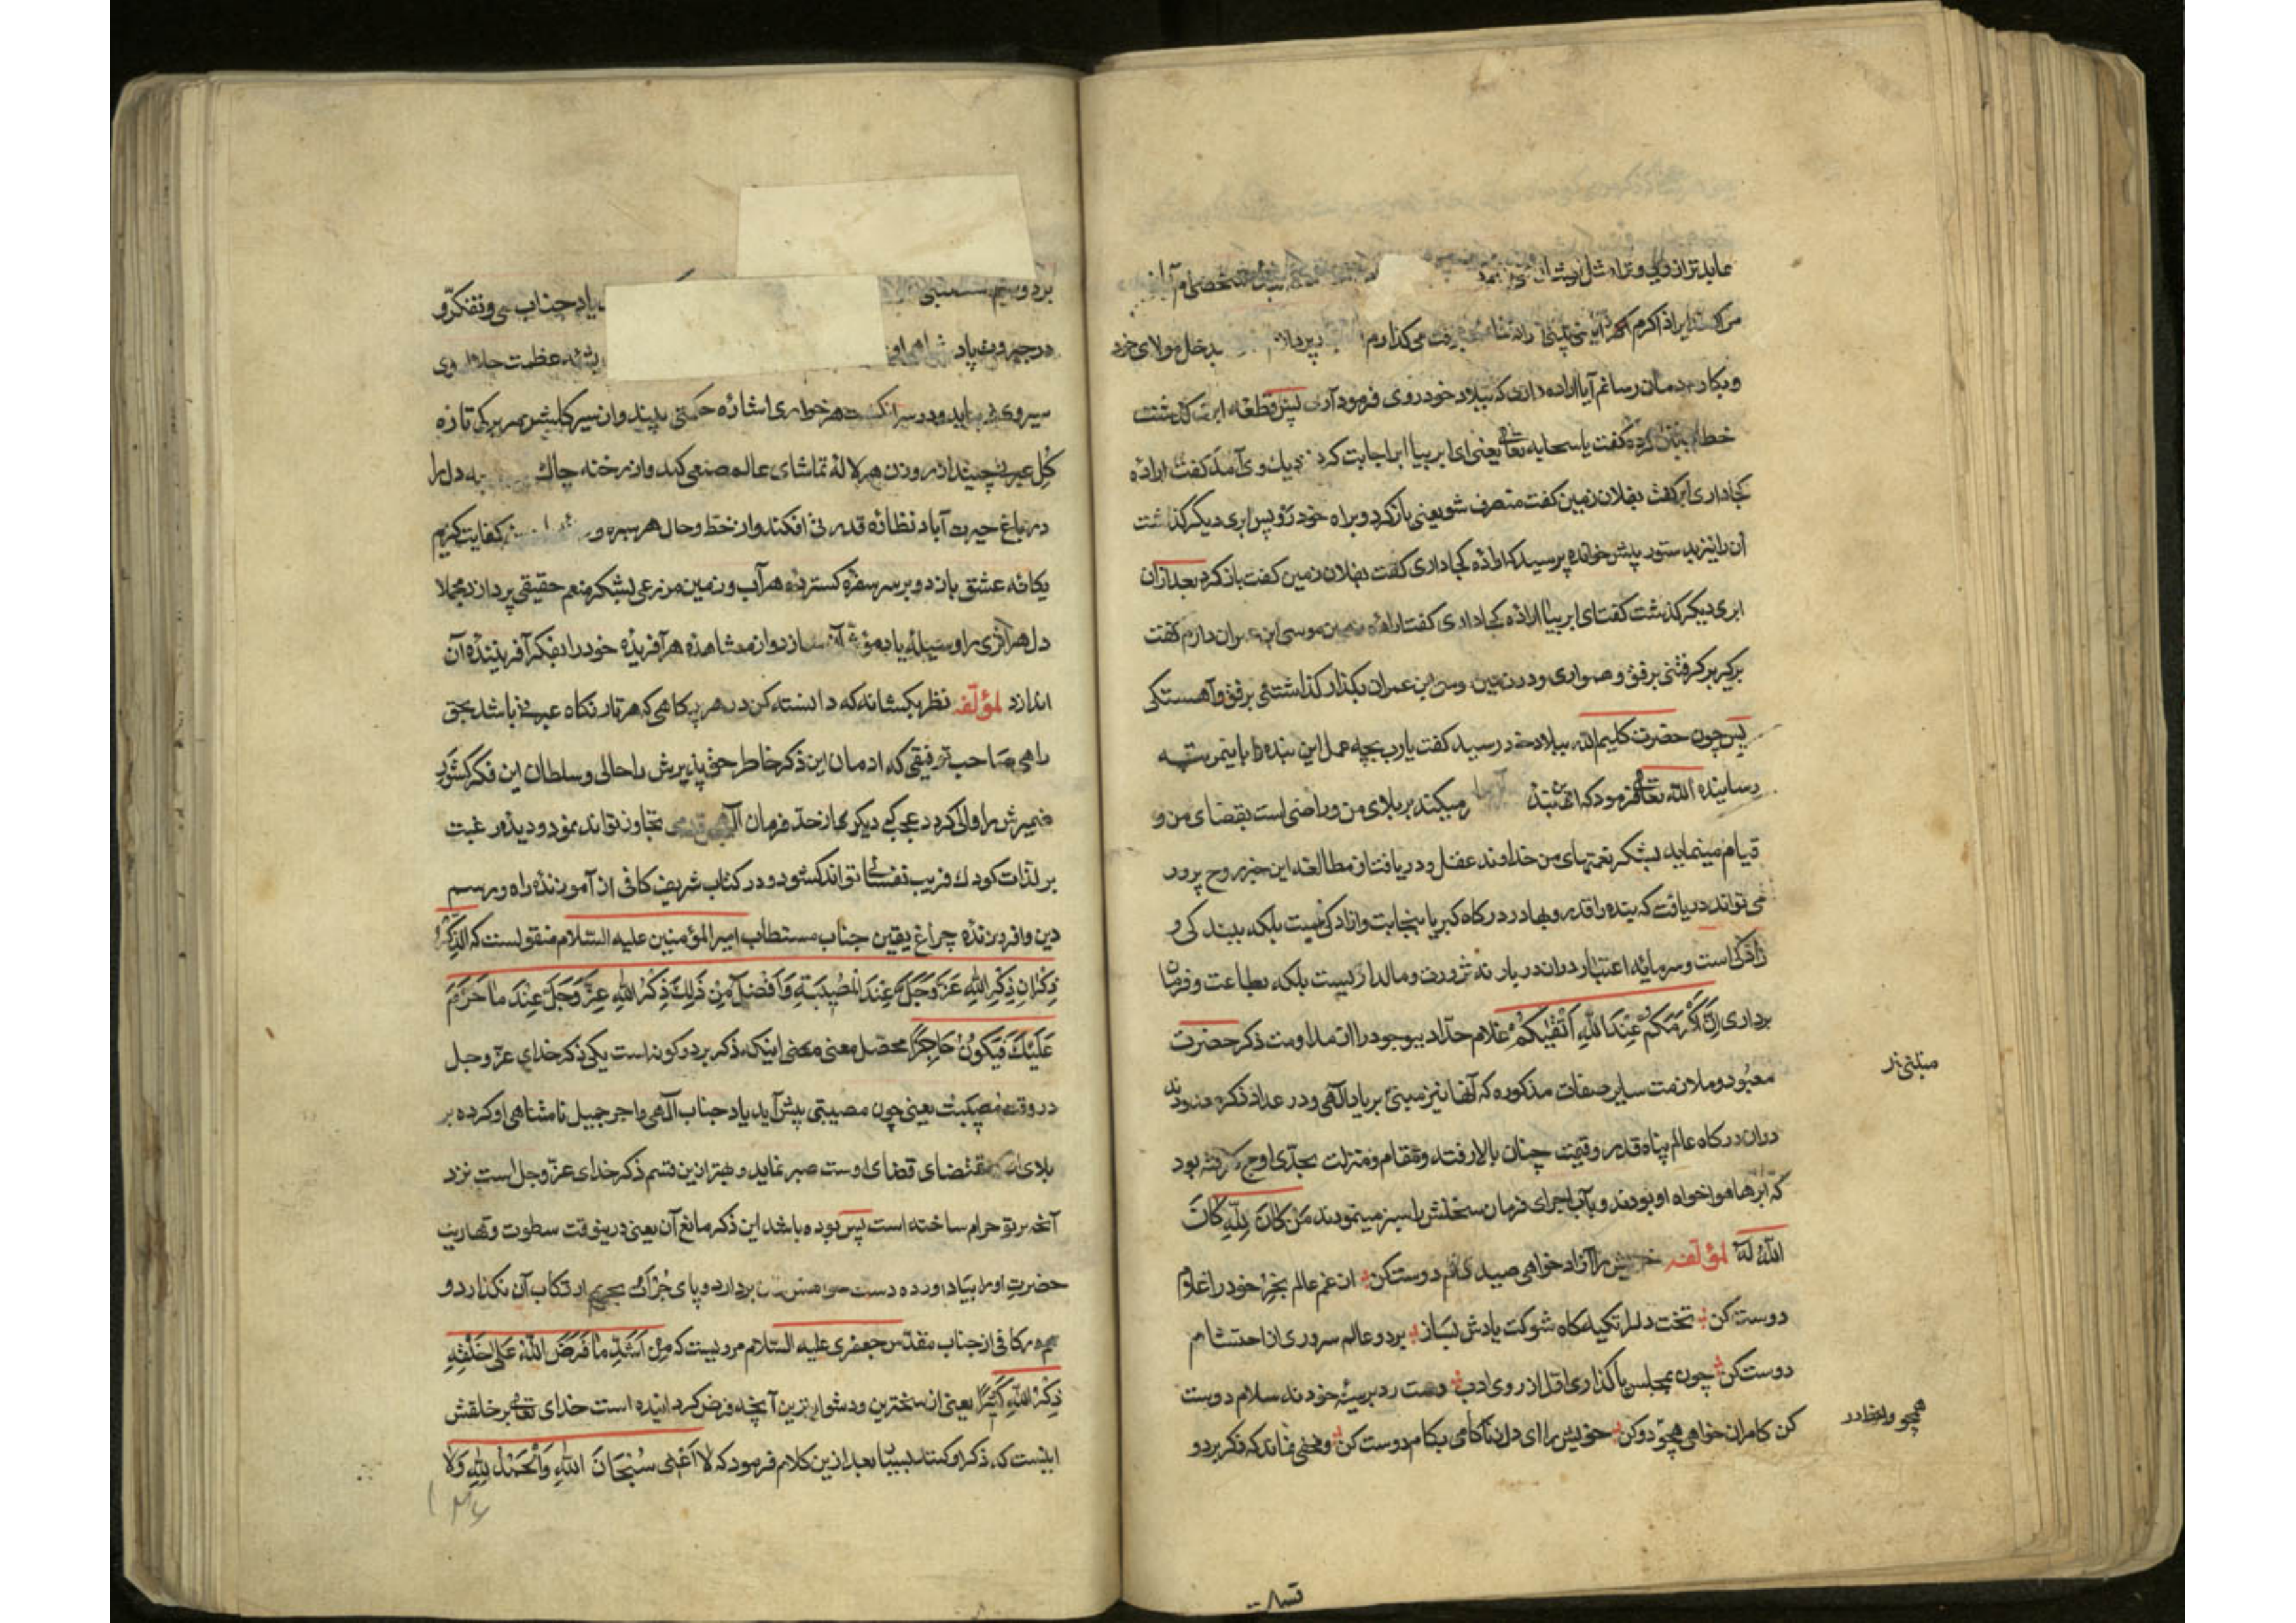 من که
و بکار درمان رسانم آیا اراده داری که ببلاد خود روی فرمود آری پس قطعه ابری گذشت
خطاب بآن کرده گفت یا سحابه تعالی یعنی ای ابر بیا ابر اجابت کرد نزدیک وی آمد گفت اراده
کجا داری ابر گفت بفلان زمین گفت منصرف شو یعنی بازگرد و براه خود رو پس ابری دیگر گذشت
آن را نیز بدستور پیش خوانده پرسید که اراده کجا داری گفت بفلان زمین گفت بازگرد بعد ازان
ابری دیگر گذشت گفت ای ابر بیا اراده کجا داری گفت اراده زمین موسی ابن عمران دارم گفت
برگیر برگرفتنی برفق و همواری و در زمین موسی ابن عمران بگذار گذاشتنی برفق و آهستگی
پس چون حضرت کلیم الله ببلاد خود رسید گفت یا رب بچه عمل این بنده را باین مرتبه
رسانیده الله تعالی فرمود که این بنده صبر میکند بر بلای من و راضی است بقضای من و
قیام مینماید بشکر نعمتهای من خداوند عقل و دریافت از مطالعه این خبر روح پرور
می تواند دریافت که بنده را قدر و بها در درگاه کبریا بنجابت و آزادگی نیست بلکه ببندگی و
است و سرمایه اعتبار دران دربار نه ثروت و مالداریست بلکه بطاعت و فرمان
برداری إِنَّ أَكْرَمَكُمْ عِنْدَ اللَّهِ أَتْقٰيكُمْ غلام حداد بوجود را از مداومت ذکر حضرت
معبود و ملازمت سایر صفات مذکوره که آنها نیز مبنی بر یاد الهی و در عداد ذکر معدودند
دران درگاه عالم پناه قدر و قیمت چنان بالا رفته و مقام و منزلت بحدی اوج گرفته بود
که ابرها هواخواه او بودند و بآب اجرای فرمان نخلش را سبز مینمودند مَنْ كَانَ لِلَّهِ كَانَ
اللَّهُ لَهُ لمؤلفه خویش را آزاد خواهی صید دام دوست کن از غم عالم بخر خود را غلام
دوست کن تخت دل را تکیه گاه شوکت یادش بساز بر دو عالم سروری از احتشام
دوست کن چون بمجلس پا گذاری اول از روی ادب دست رد بر سینه خود نه سلام دوست
کن کامران خواهی همچو دو کن خویش را ای دل ز ناکامی بکام دوست کن و مخفی نماند که ذکر بر دو
مبتنی‌اند
یاد جناب وی و تفکر و
اندیشه عظمت جلال وی
سیر وی نماید و در سر انگشت هر خواری اشاره حکمتی ببیند و از سیر گلشن هر برگی تازه
گل عبرت چیند از روزن هر لاله تماشای عالم صنعی کند و از رخنه چاک
در باغ حیرت آباد نظاره قدرتی افکند و از خط و خال هر سبزه و
یگانه عشق بازد و بر سر سفره گسترده هر آب و زمین مزرعی بشکر منعم حقیقی پردازد مجملا
دل هر اثری را وسیله یاد مؤثر آن سازد و از مشاهده هر آفریده خود را بفکر آفریننده آن
اندازد لمؤلفه نظر بکسانه که دانسته کن در هر پرکاهی که هر تار نگاه عبرت باشد بحق
راهی صاحب توفیقی که ادمان این ذکر خاطر حق پذیرش را حالی و سلطان این فکر کشور
ضمیرش را والی کرد عجب که دیگر از حد فرمان الهی قدمی تجاوز تواند نمود و دیده رغبت
بر لذات کودک فریب نفسانی تواند گشود و در کتاب شریف کافی از آموزنده راه و رسم
دین و افروزنده چراغ یقین جناب مستطاب امیر المؤمنین علیه السلام منقولست که الذِّكْرُ
ذِكْرَانِ ذِكْرُ اللهِ عَزَّوَجَلَّ عِنْدَ الْمُصِيبَةِ وَأَفْضَلُ مِنْ ذٰلِكَ ذِكْرُ اللهِ عَزَّوَجَلَّ عِنْدَ مَا حَرَّمَ
عَلَيْكَ فَيَكُونُ حَاجِزًا محصل معنی اینکه ذکر بر دو گونه است یکی ذکر خدای عز و جل
در وقت مصیبت یعنی چون مصیبتی پیش آید یاد جناب الهی و اجر جمیل نامتناهی او کرده بر
بلای که مقتضای قضای اوست صبر نماید و بهتر ازین قسم ذکر خدای عز و جل است نزد
آنچه بر تو حرام ساخته است پس بوده باشد این ذکر مانع آن یعنی درینوقت سطوت و قهاریت
حضرت او را بیاد آورده دست بردارد و پای جرأت بحریم ارتکاب آن نگذارد و
هم در کافی از جناب مقدس جعفری علیه السلام مرویست که مِنْ أَشَدِّ مَا فَرَضَ اللهُ عَلَى خَلْقِهِ
ذِكْرُ اللهِ كَثِيرًا یعنی از سخترین و دشوارترین آنچه فرض گردانیده است خدای تعالی بر خلقش
اینست که ذکر او کنند بسیار بعد ازین کلام فرمود که لا أَعْنِي سُبْحَانَ اللهِ وَالْحَمْدُ لِلَّهِ وَلا